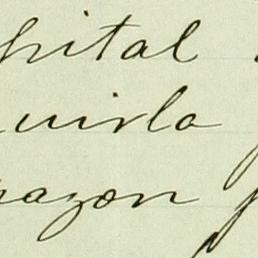 pital
uirla
razon